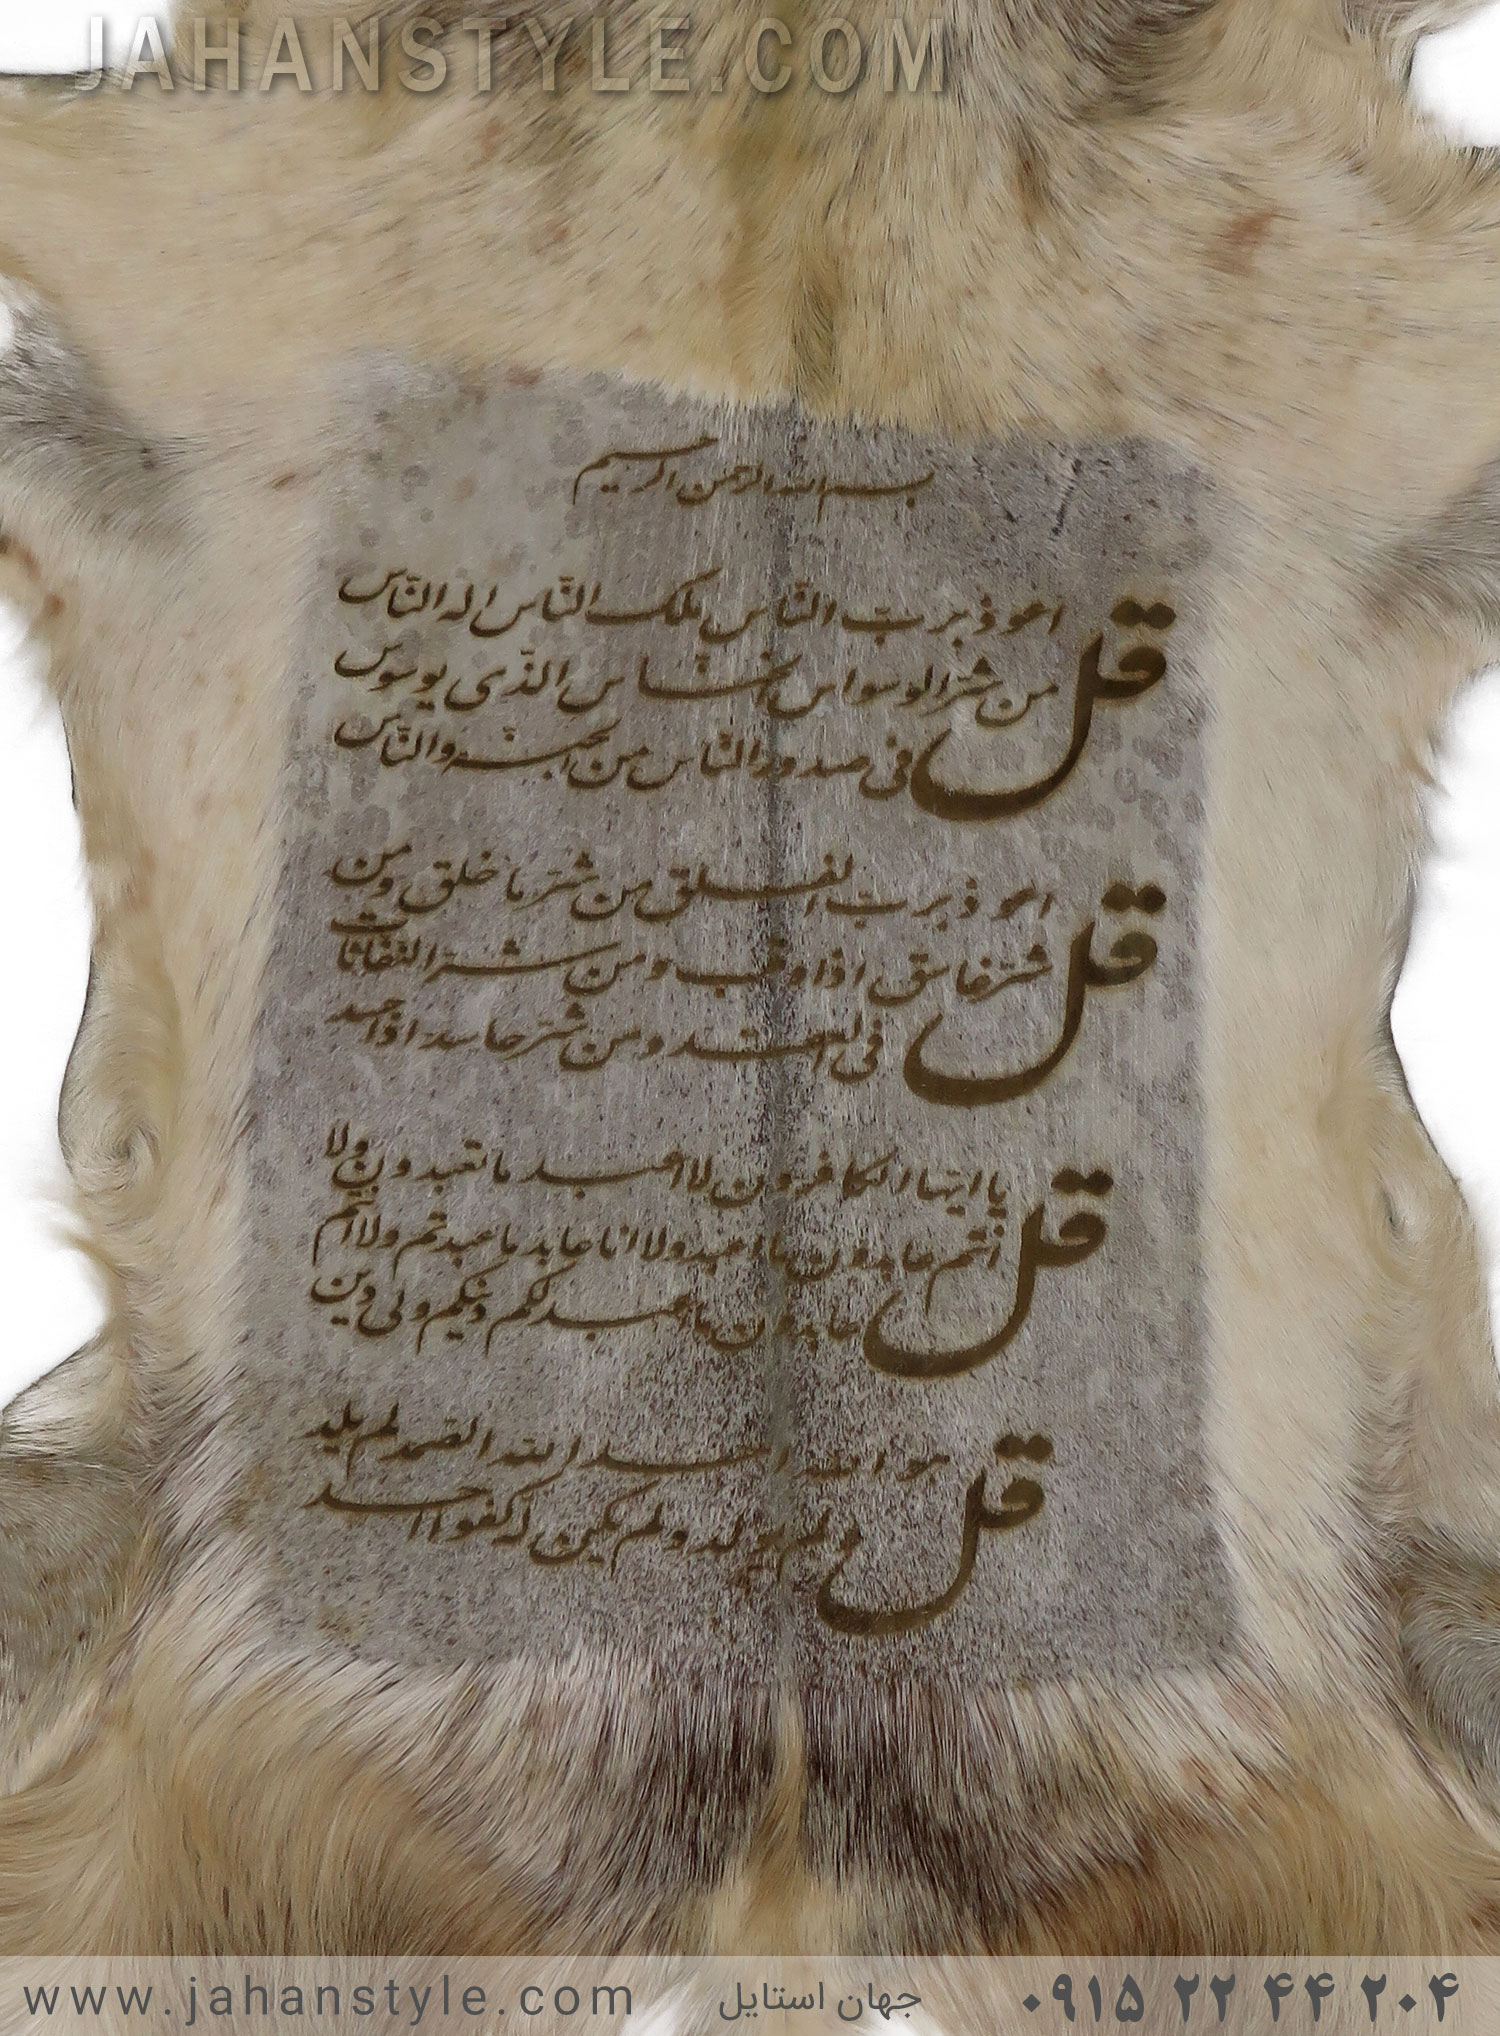 JAHANSTYLE.COM
بسم الله الرحمن الرحیم
قل اعوذ بربّ النّاس ملک النّاس اله النّاس
من شرّ الوسواس الخنّاس الذّی یوسوس
فی صدور النّاس من الجنّه والنّاس
قل اعوذ بربّ الفلق من شرّ ما خلق ومن
شرّ غاسق اذا وقب ومن شرّ النفّاثات
فی العقد ومن شرّ حاسد اذا حسد
قل یا ایّها الکافرون لا اعبد ما تعبدون ولا
انتم عابدون ما اعبد ولا انا عابد ما عبدتم ولا انتم
عابدون ما اعبد لکم دینکم ولی دین
قل هو الله احد الله الصّمد لم یلد
ولم یولد ولم یکن له کفوا احد
www.jahanstyle.com جهان استایل ۰۹۱۵ ۲۲ ۴۴ ۲۰۴